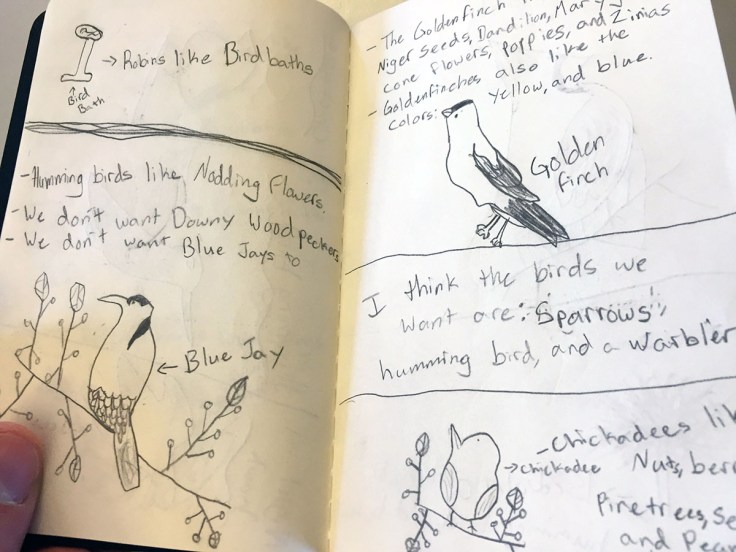 → Robins like Bird baths
↑
Bird
Bath
- Humming birds like Nodding Flowers.
- We don't want Downy Woodpeckers
- We don't want Blue Jays to
← Blue Jay
- The Goldenfinch
Niger seeds, Dandilion, Mary
cone flowers, poppies, and Zinias
- Goldenfinches also like the
colors: yellow, and blue.
Golden
finch
I think the birds we
want are: Sparrows,
humming bird, and a Warbler
- Chickadees
→ chickadee
Nuts,
Pinetrees,
and